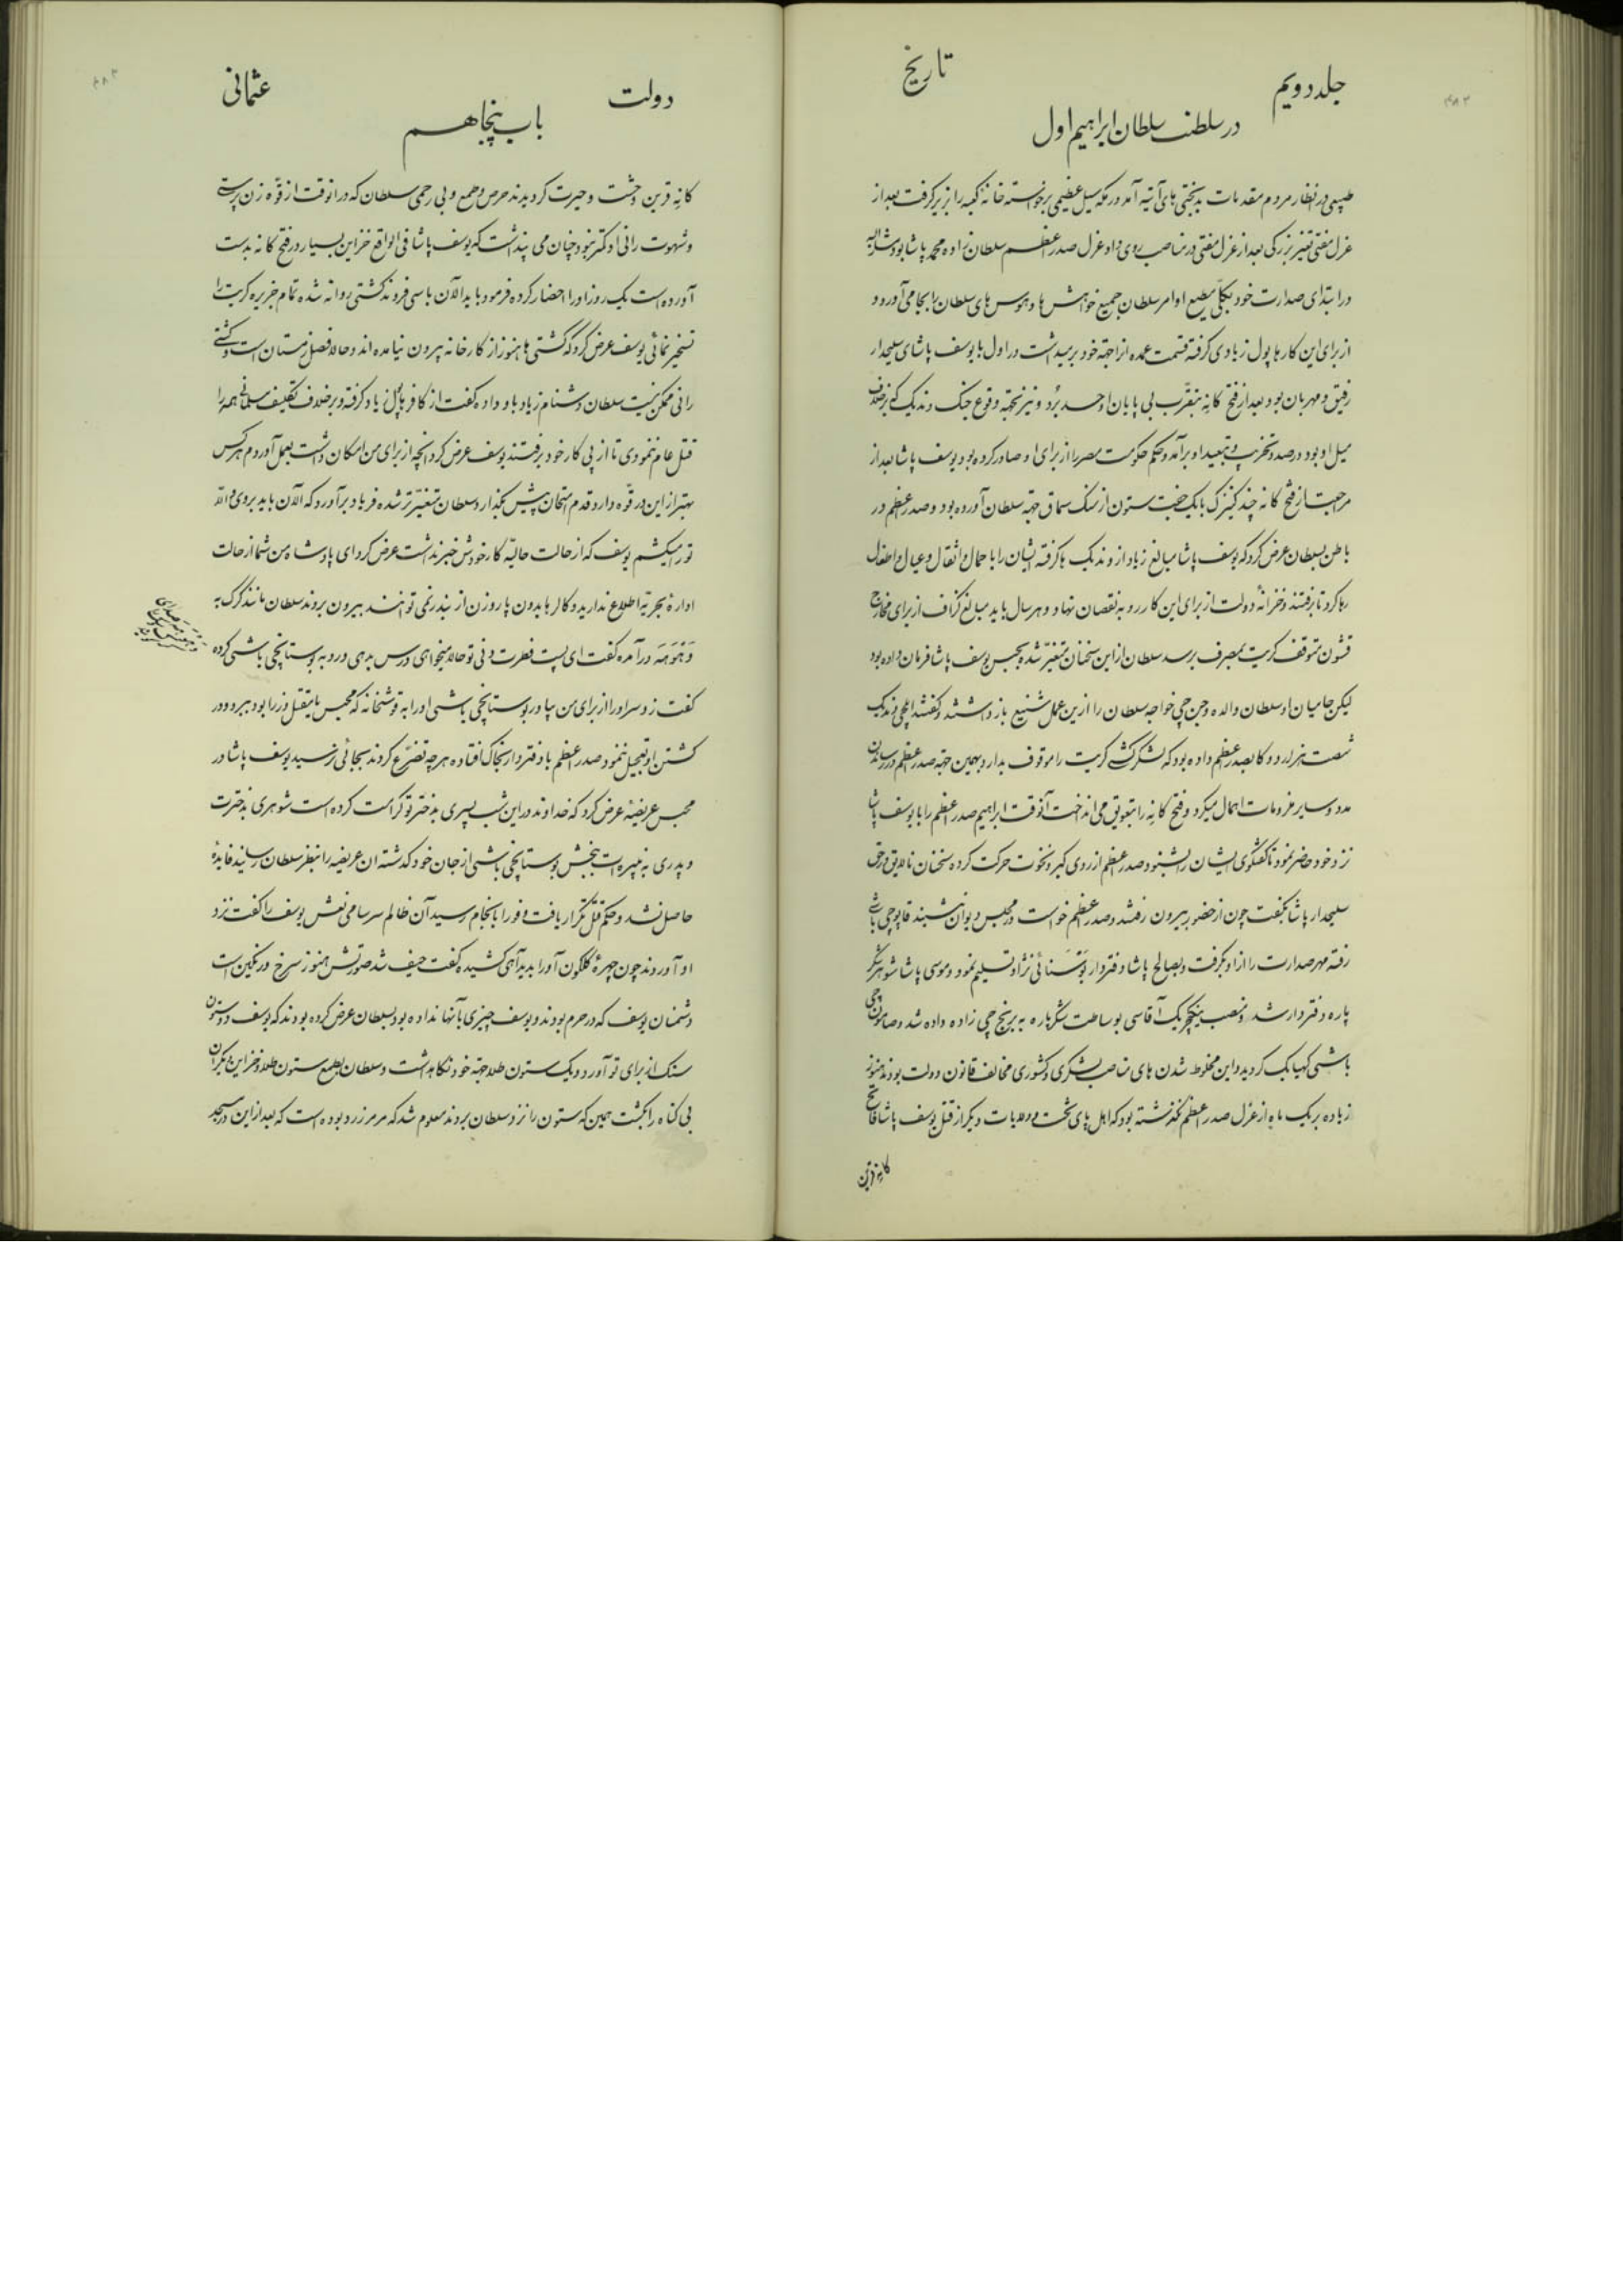 جلد دویم
تاریخ
در سلطنت سلطان ابراهیم اول
طبیعی در انظار مردم مقدمات بدبختی های آتیه آمد در مکه سیل عظیمی برخواسته خانه کعبه را بزیر گرفت بعد از
عزل مفتی تغییر بزرگی بعد از عزل مفتی در مناصب روی داد و عزل صدر اعظم سلطان زاده محمد پاشا بود مشارالیه
در ابتدای صدارت خود بکلی مطیع اوامر سلطان جمیع خواهش ها و هوس های سلطان را بجا می آورد و
از برای این کارها پول زیادی گرفته قسمت عمده از اجهة خود برمیداشت در اول با یوسف پاشای سلیحدار
رفیق و مهربان بود بعد از فتح کانه بتقرب بی پایان او حسد برد و نیز بجهة وقوع جنک وندیک که برخلاف
میل او بود درصدد تخریب و تبعید او برآمد و حکم حکومت مصر را از برای او صادر کرده بود یوسف پاشا بعد از
مراجعت از فتح کانه چند کنیزک با یک جفت ستون از سنک سماق جهة سلطان آورده بود و صدر اعظم در
باطن بسلطان عرض کرد که یوسف پاشا مبالغ زیاد از وندیک ها گرفته ایشان را با احمال و اثقال و عیال و اطفال
رها کرد تا برفتند و خزانهٔ دولت از برای این کار رو به نقصان نهاد و هر سال باید مبالغ گزاف از برای مخارج
قشون متوقف کریت بمصرف برسد سلطان از این سخنان متغیر شده بحبس یوسف پاشا فرمان داده بود
لیکن حامیان او سلطان والده و جن جی خواجه سلطان را ازین عمل شنیع بازداشتند و گفتند ایلچی وندیک
شصت هزار دوکا بصدر اعظم داده بود که لشکرکشی کریت را موقوف بدارد و بهمین جهة صدر اعظم در رساندن
مدد و سایر ملزومات اهمال میکرد و فتح کانه را بتعویق می انداخت آنوقت ابراهیم صدر اعظم را با یوسف پاشا
نزد خود حاضر نمود تا گفتگوی ایشان را بشنود صدر اعظم از روی کبر و نخوت حرکت کرده سخنان نالایق در حق
سلیحدار پاشا بگفت چون از حضور بیرون رفتند و صدر اعظم خواست در مجلس دیوان بنشیند قاپوچی باشی
رفته مهر صدارت را از او بگرفت و بصالح پاشا دفتردار بوسنائی نژاد تسلیم نمود و موسی پاشا شوهر شکر
پاره دفتردار شد و منصب ینکچریک آقاسی بوساطت شکرپاره به برنج چی زاده داده شد و صابون چی
باشی کهیا بک گردید و این مخلوط شدن های مناصب لشکری و کشوری مخالف قانون دولت بودند هنوز
زیاده بر یک ماه از عزل صدر اعظم نگذشته بود که اهل پای تخت و ولایات دیگر از قتل یوسف پاشا فاتح
کانه قرین
دولت
عثمانی
باب پنجاهم
کانه قرین وحشت و حیرت گردیدند حرص و طمع و بی رحمی سلطان که در آنوقت از قوّه زن پرستی
و شهوت رانی او کمتر نبود چنان می پنداشت که یوسف پاشا فی الواقع خزاین بسیار در فتح کانه بدست
آورده است یک روز او را احضار کرده فرمود باید الآن با سی فروند کشتی روانه شده تمام جزیره کریت را
تسخیر نمائی یوسف عرض کرد که کشتی ها هنوز از کارخانه بیرون نیامده اند و حالا فصل زمستان است و کشتی
رانی ممکن نیست سلطان دشنام زیاد باو داده گفت از کافرها پول زیاد گرفته و برخلاف تکلیف مسلمانی همه را
قتل عام ننمودی تا از پی کار خود برفتند یوسف عرض کرد آنچه از برای من امکان داشت بعمل آوردم هر کس
بهتر از این در قوّه دارد قدم امتحان پیش بگذارد سلطان متغیّرتر شده فریاد برآورد که الآن باید بروی والّا
تو را میکشم یوسف که از حالت حالیّه کار خودش خبر نداشت عرض کرد ای پادشاه من شما از حالت
اداره بحریه اطلاع ندارید و کالرها بدون پاروزن از بندر نمی توانند بیرون بروند سلطان مانند گرگ به
وَهْوَهَه درآمده گفت ای پست فطرت دنی تو حالا میخواهی درس بدهی و رو به بوستانچی باشی کرده
گفت زود سر او را از برای من بیاور بوستانچی باشی او را به قوشخانه که محبس مایتقتل وزرا بود ببرد و در
کشتن او تعجیل ننمود صدر اعظم با دفتردار بخاک افتاده هر چه تضرّع کردند بجائی نرسید یوسف پاشا در
محبس عریضهٔ عرض کرد که خداوند در این شب پسری بدختر تو کرامت کرده است شوهری بدخترت
و پدری به نبیره ات ببخش بوستانچی باشی از جان خود گذشته آن عریضه را بنظر سلطان رسانید فایدهٔ
حاصل نشد و حکم قتل تکرار یافت و فورا بانجام رسید آن ظالم سرسامی نعش یوسف را گفت نزد
او آوردند چون چهرهٔ گلگون او را بدید آهی کشیده گفت حیف شد صورتش هنوز سرخ و رنگین است
دشمنان یوسف که در حرم بودند و یوسف چیزی بآنها نداده بود بسلطان عرض کرده بودند که یوسف دو ستون
سنک از برای تو آورد و یک ستون طلا جهة خود نگاهداشت و سلطان بطمع ستون طلا و خزاین دیگر آن
بی گناه را بکشت همین که ستون را نزد سلطان بردند معلوم شد که مرمر زرد بوده است که بعد از این در مسجد